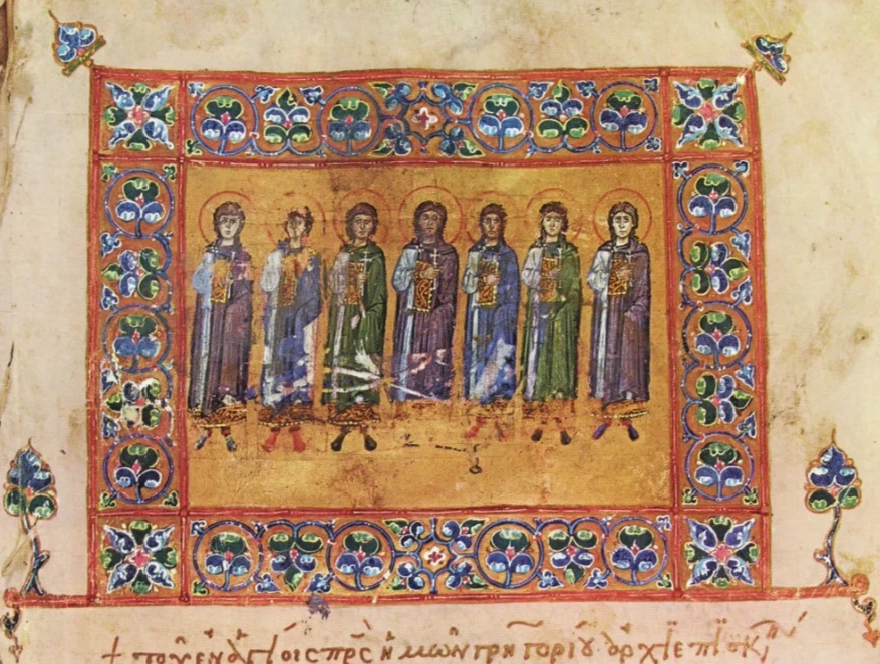 + τοῦ ἐν ἁγίοις πρ̅ς ἡμῶν γρηγορίȣ ἀρχϊεπϊσκ